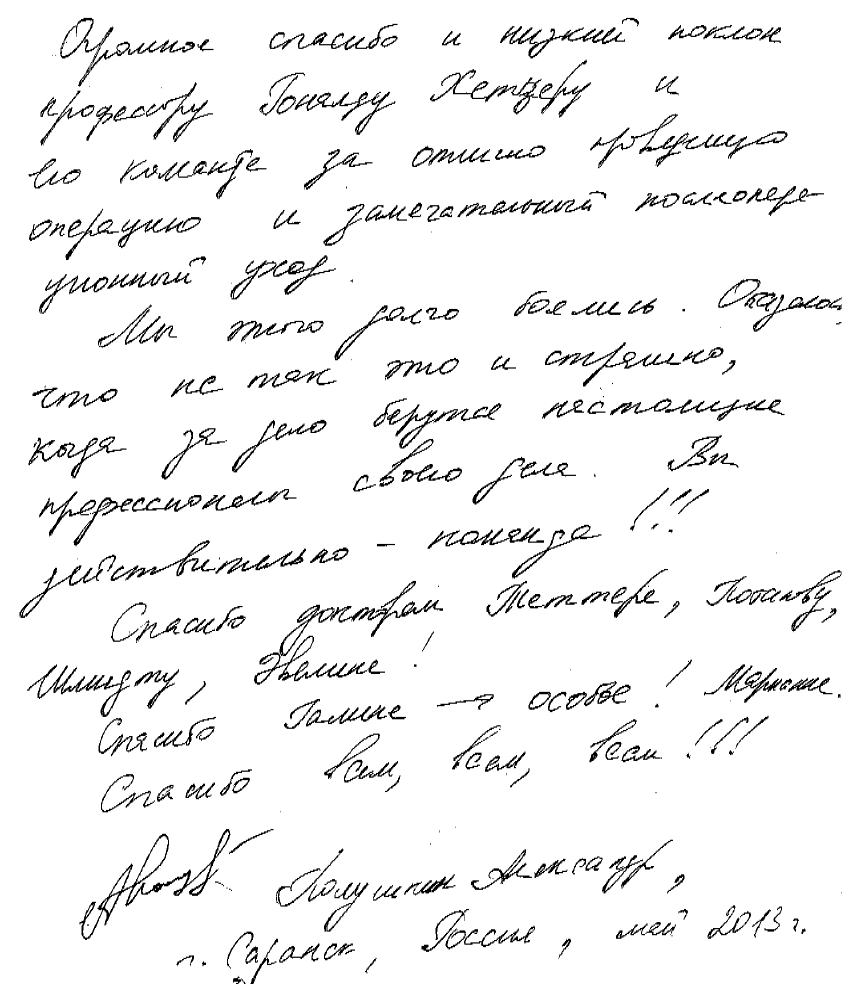 Огромное спасибо и низкий поклон
профессору Роналду Хетцеру и
его команде за отлично проведенную
операцию и замечательный послеопера
ционный уход.
Мы этого долго боялись. Оказалось,
что не так это и страшно,
когда за дело берутся настоящие
профессионалы своего дела. Вы
действительно – команда!!!
Спасибо докторам Теттере, Потапову,
Шмидту, Эвелине!
Спасибо Галине → особое! Марианне.
Спасибо всем, всем, всем!!!
Александр,
г. Саранск, Россия, май 2013 г.